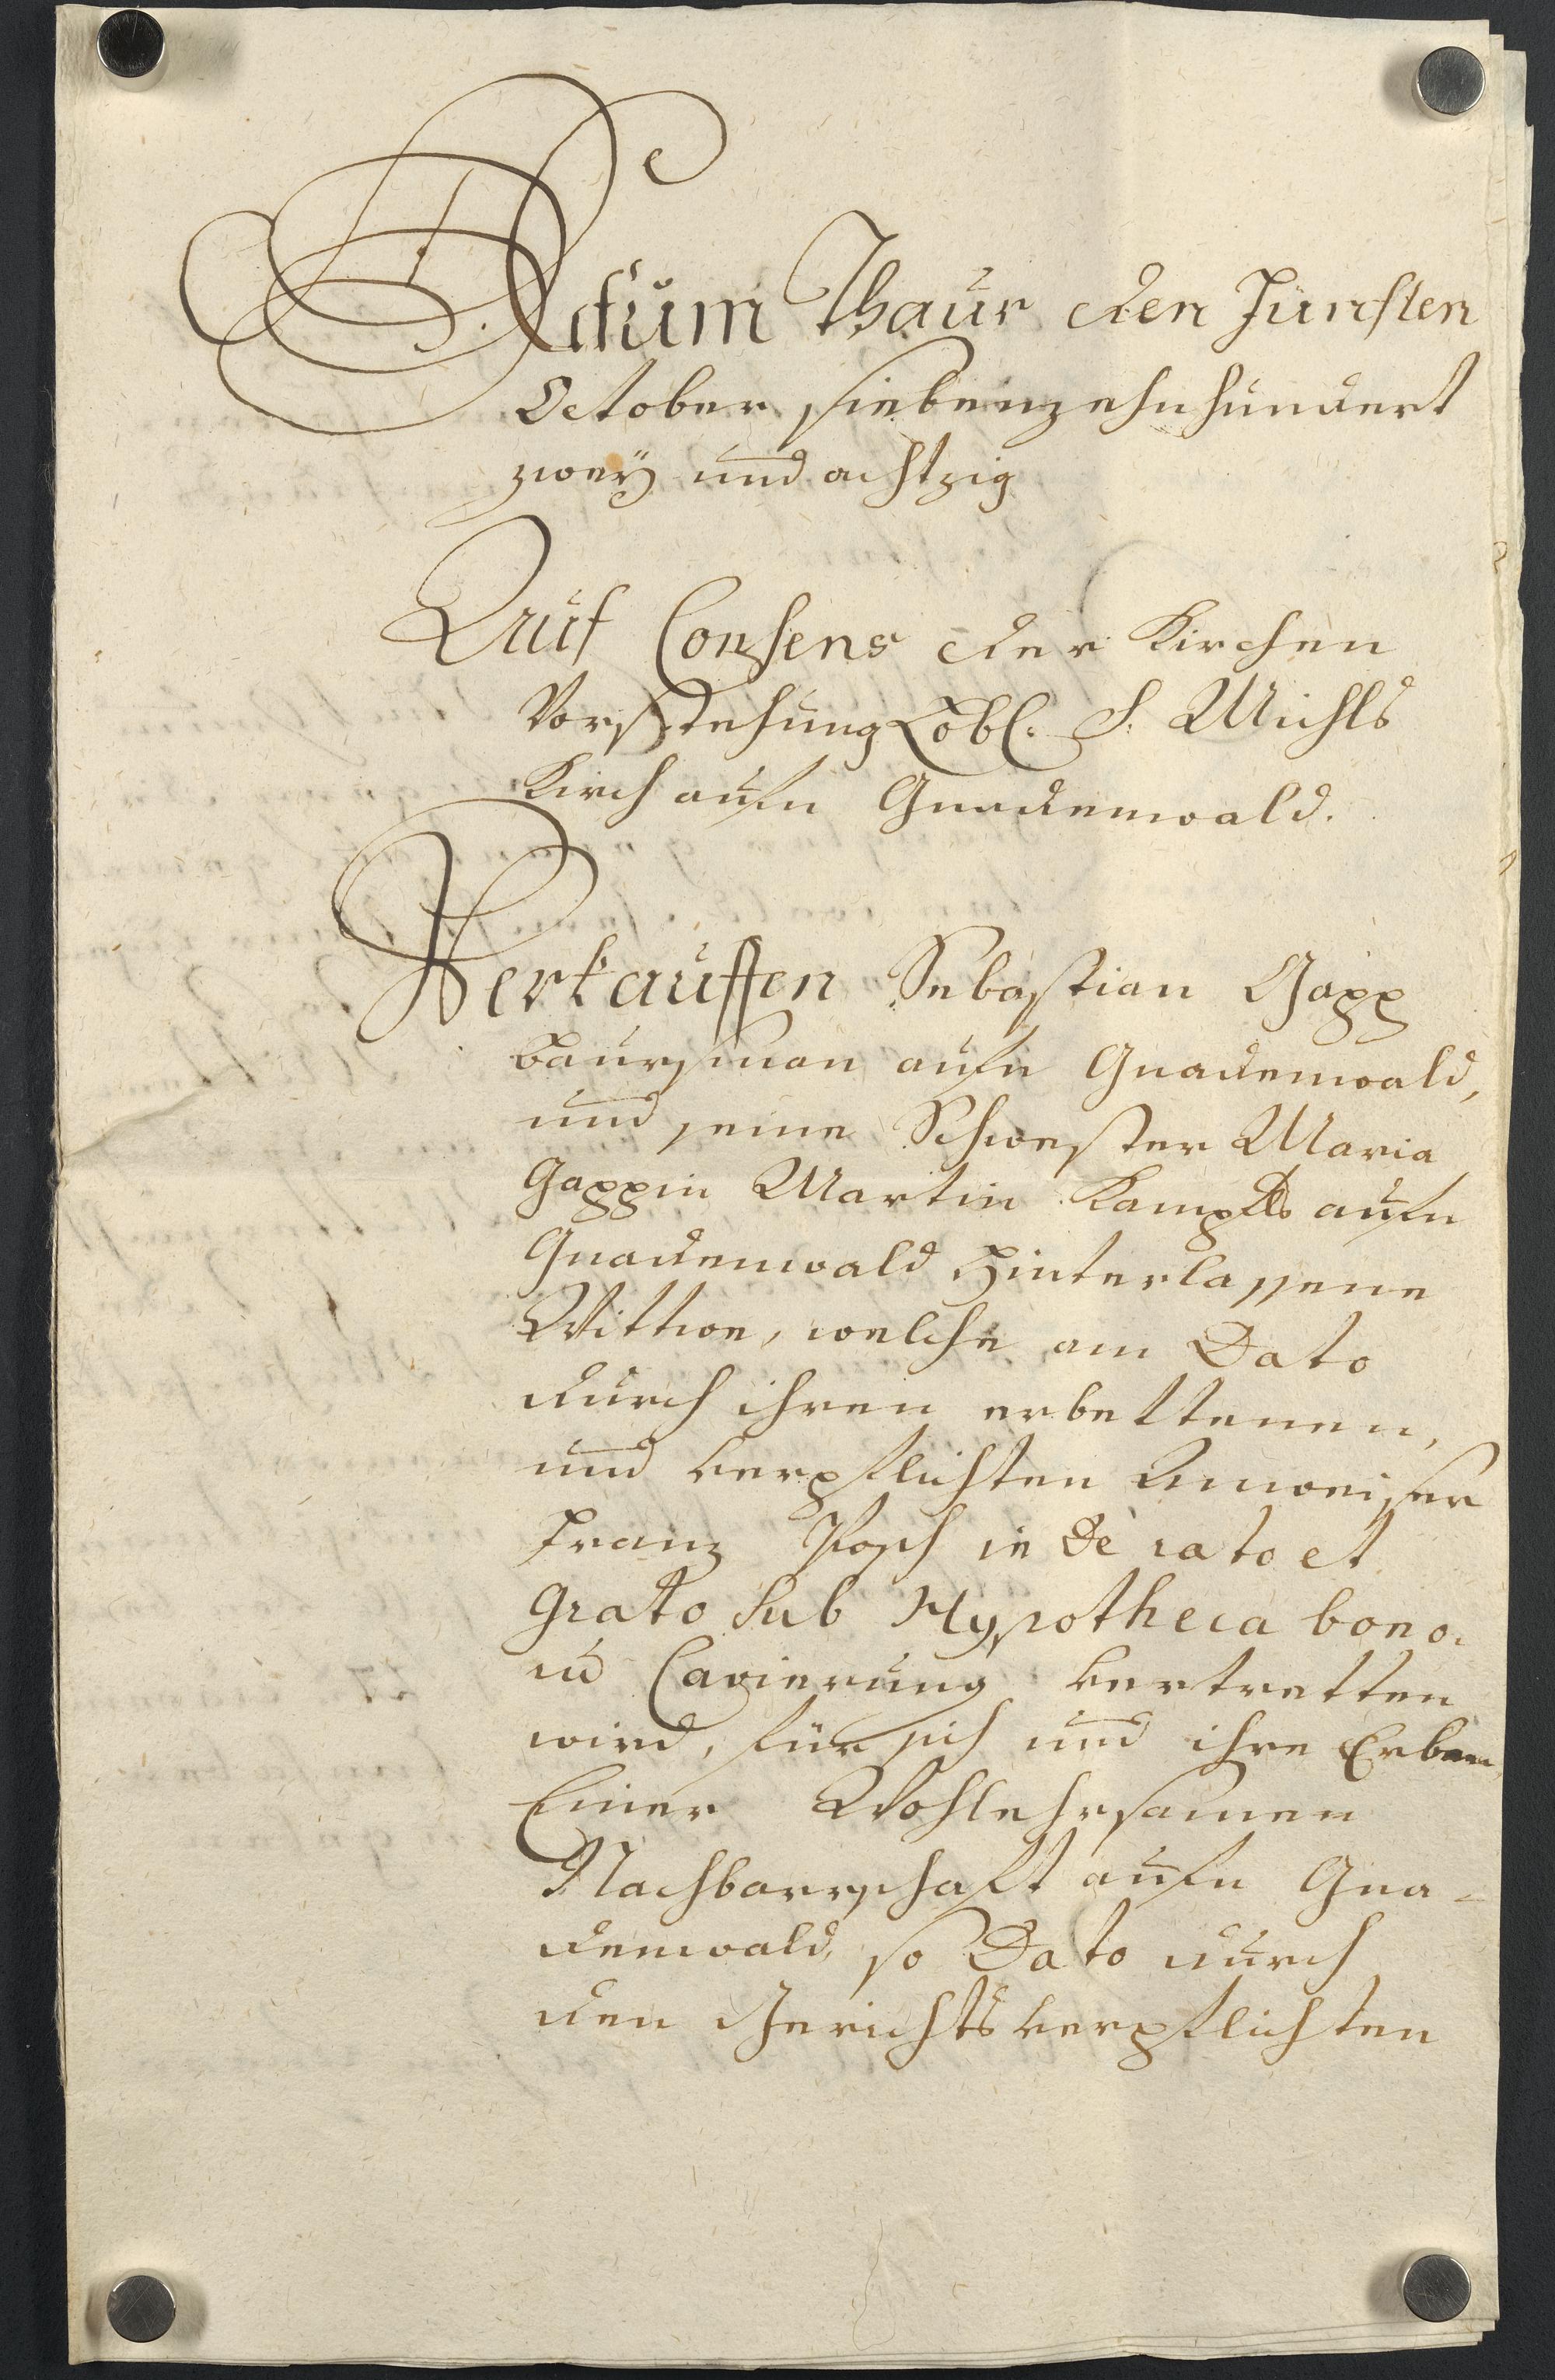 Actum Thaur den Fünften
October siebenzehnhundert
zweÿ und achtzig
Auf Consens der Kirchen
Vorstehung Löbl: S: Michls
Kirch aufn Gnadenwald.
Verkauffen Sebastian Gapp
Baursman aufn Gnadenwald,
und seine Schwester Maria
Gappin Martin Kampls aufn
Gnadenwald Hinterlassene
Wittwe, welche am Dato
durch ihren erbettenen,
und verpflichten Anweiser
Franz Posch in De rato et
Grato sub Hypotheca bono:
Cavierung vertretten
wird, für sich und ihre Erben
Einer Wohlehrsamen
Nachbarrschaft aufn Gna-
denwald, so Dato durch
den Gerichtsverpflichten